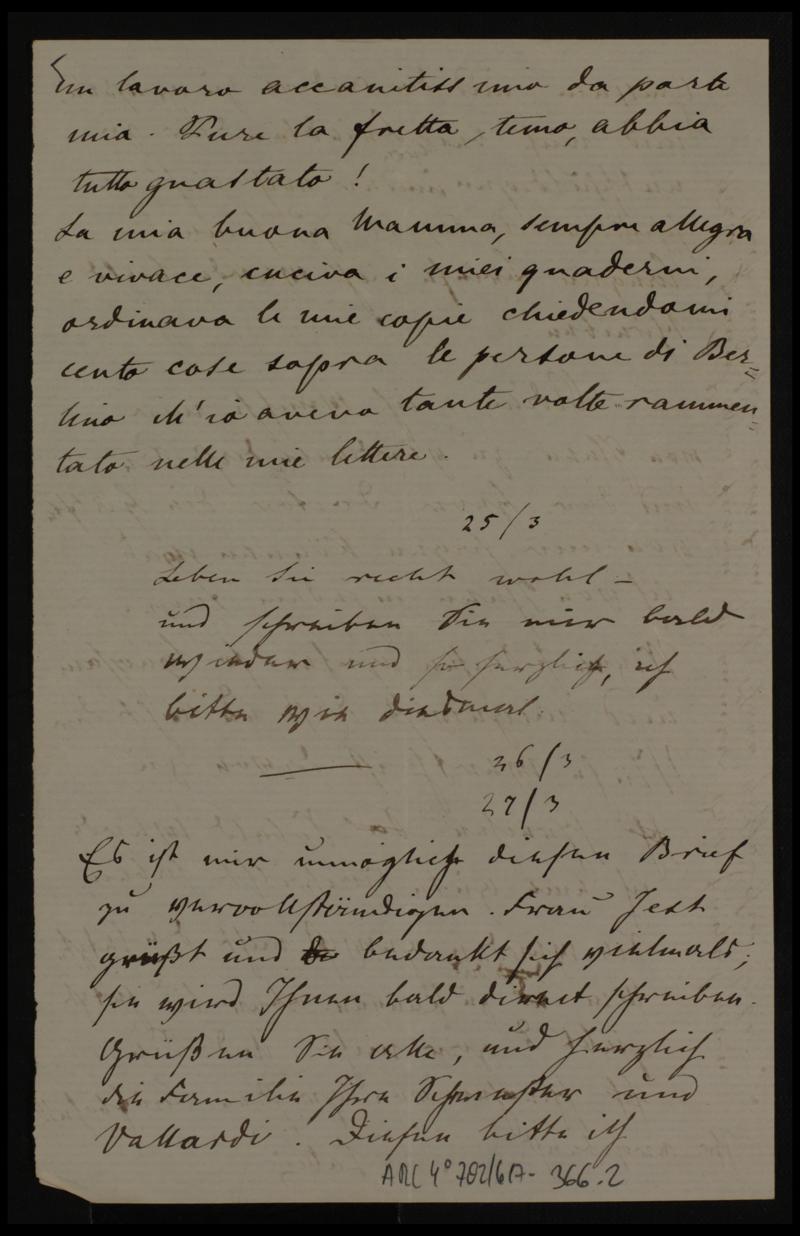 un lavoro accanitissimo da parte
mia. Pure la fretta, temo, abbia
tutto guastato!
La mia buona Mamma, sempre allegra
e vivace, cuciva i miei quaderni,
ordinava le mie copie chiedendomi
cento cose sopra le persone di Ber=
lino ch'io avevo tante volte rammen=
tato nelle mie lettere.
25/3
Leben Sie recht wohl –
und schreiben Sie mir bald
wieder und so herzlich, ich
bitte wie diesmal.
26/3
27/3
Es ist mir unmöglich diesen Brief
zu vervollständigen. Frau Jest
grüßt und bedankt sich vielmals;
sie wird Ihnen bald direct schreiben.
Grüßen Sie alle, und herzlich
die Familie Ihre Schwester und
Vallardi. Diesen bitte ich
ARC 4° 782/6 17- 366.2